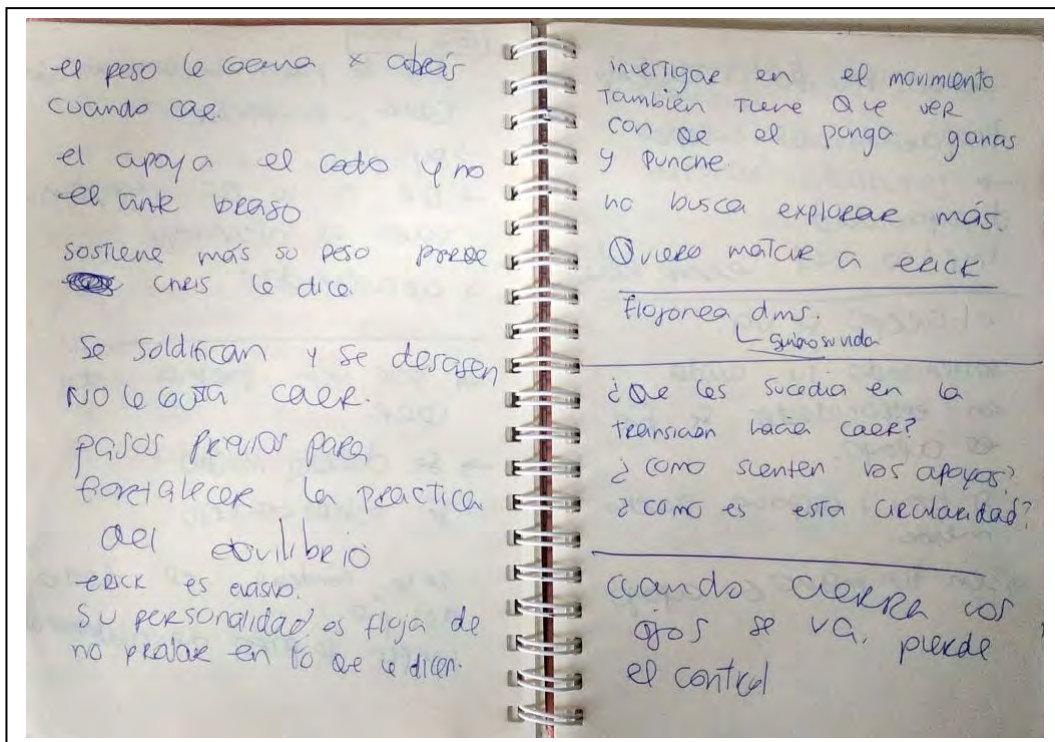 el peso le gana x atrás
cuando cae.
el apoya el codo y no
el ante braso
sostiene más su peso porqe
chris le dice
Se soldifican y se desasen
NO le GUSTA caer.
pasos previos para
fioretalecer la practica
del equilibrio
erick es evasivo.
Su personalidad es floja de
no probar en lo qe le dicen.
investigar en el movimiento
Tambien Tiene Que ver
con qe el ponga ganas
y punche.
no busca explorar más.
Quiero matar a erick
flojonea dms.
¿Que les sucedia en la
transición hacia caer?
¿como sienten los apoyos?
¿como es esta circularidad?
cuando cierra los
ojos se va. pierde
el control